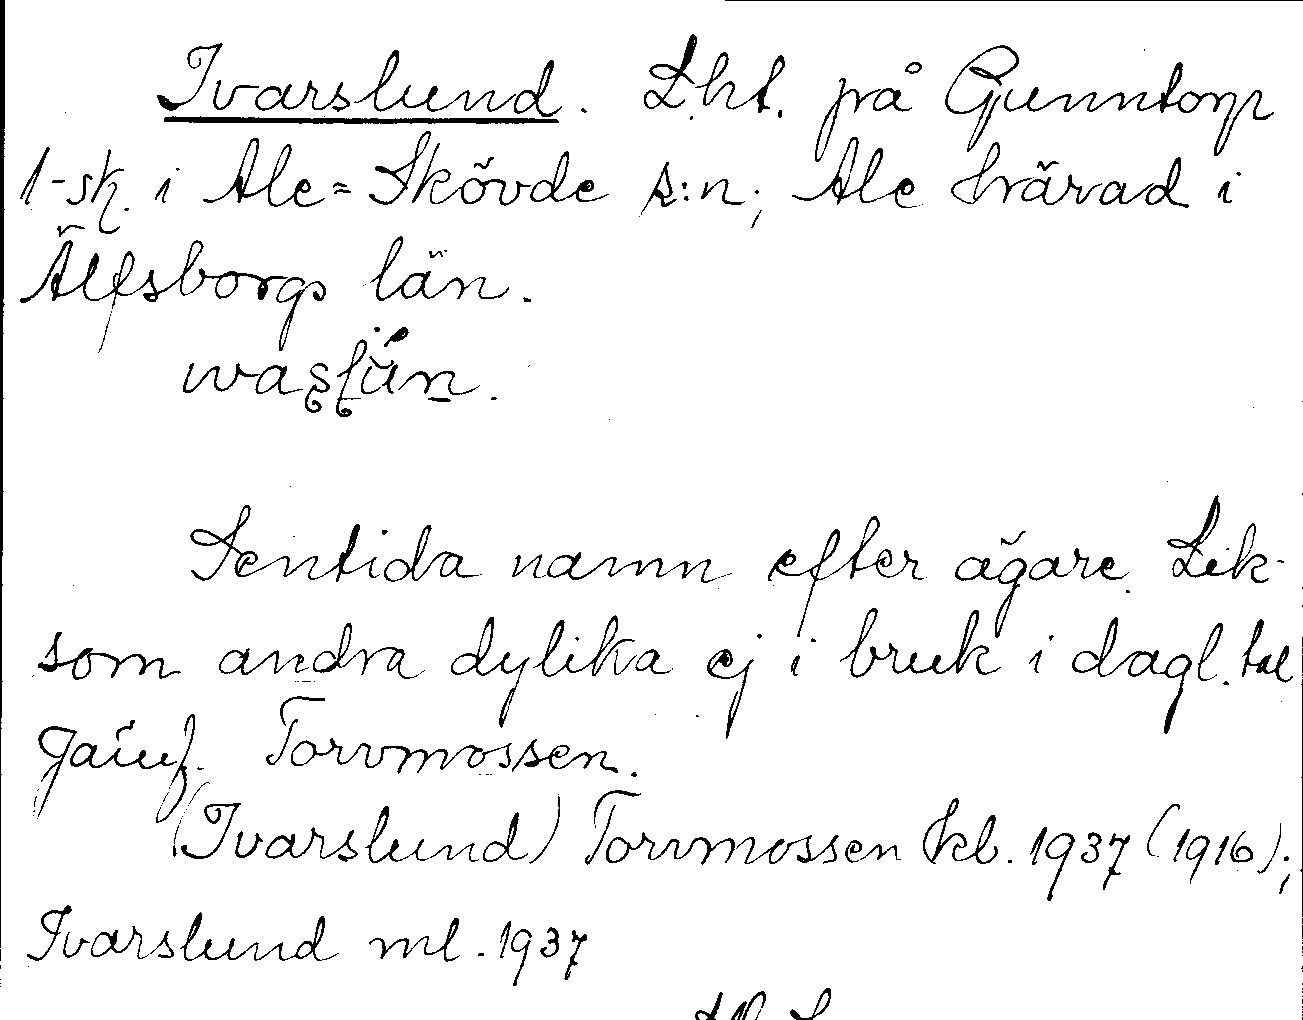 Ivarslund. Lht. på Gunntorp
1-sk. i Ale-Skövde s:n; Ale härad i
Älfsborgs län.
Sentida namn efter ägare. Lik-
som andra dylika ej i bruk i dagl. tal
Jämf. Torvmossen.
(Ivarslund) Torvmossen kb. 1937 (1916);
Ivarslund ml. 1937